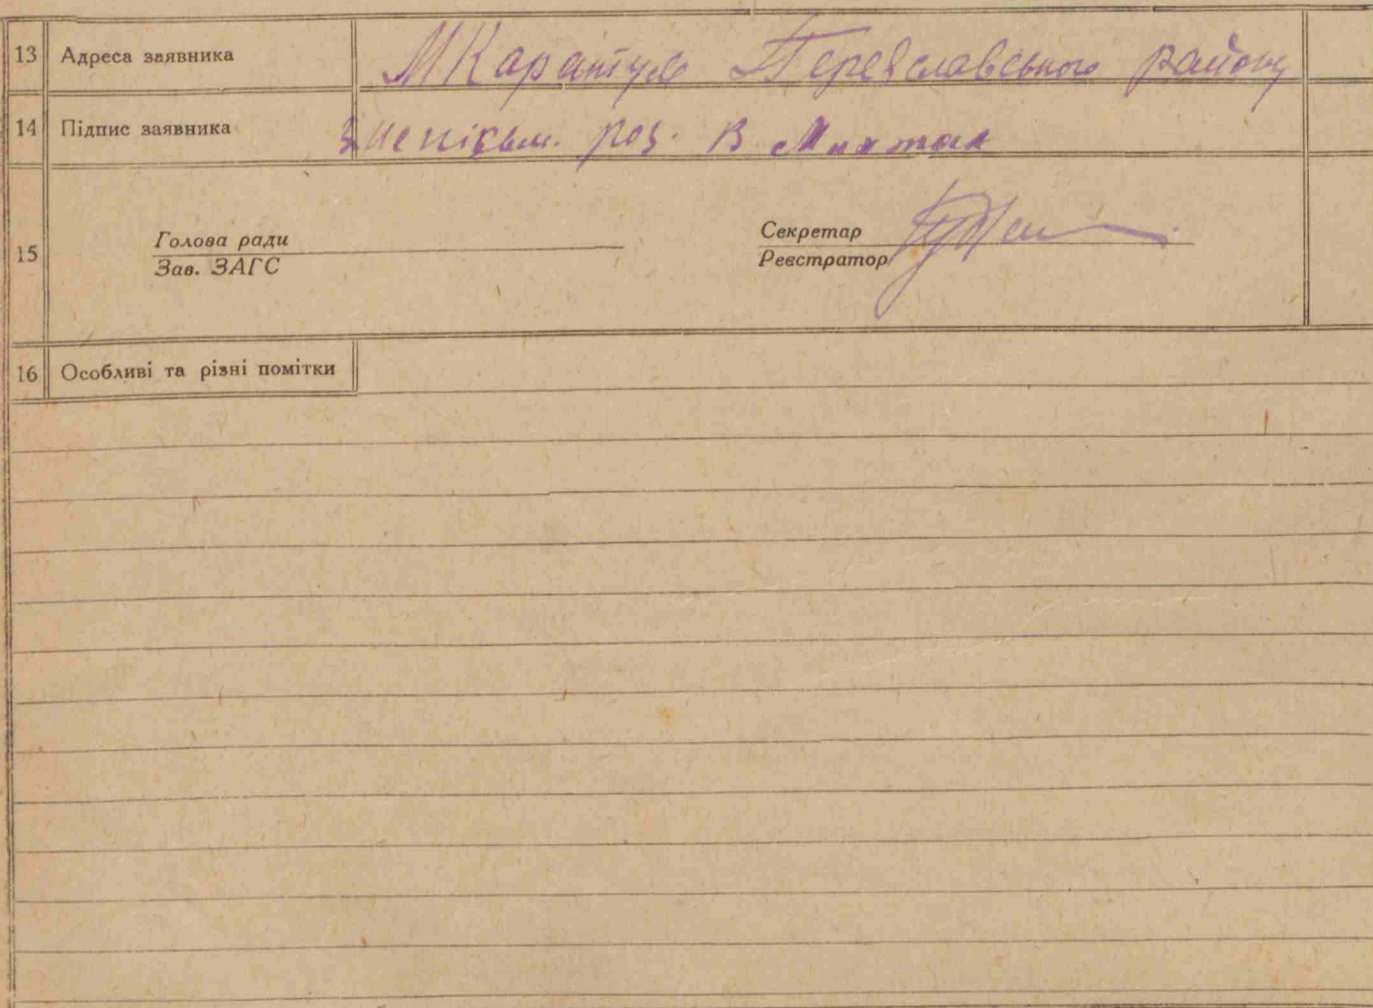 13 Адреса заявника МКаратуль Переяславського району
14 Підпис заявника За неписьм. роз. В
15 Голова ради
Зав. ЗАГС
Секретар
Реєстратор
16 Особливі та різні помітки